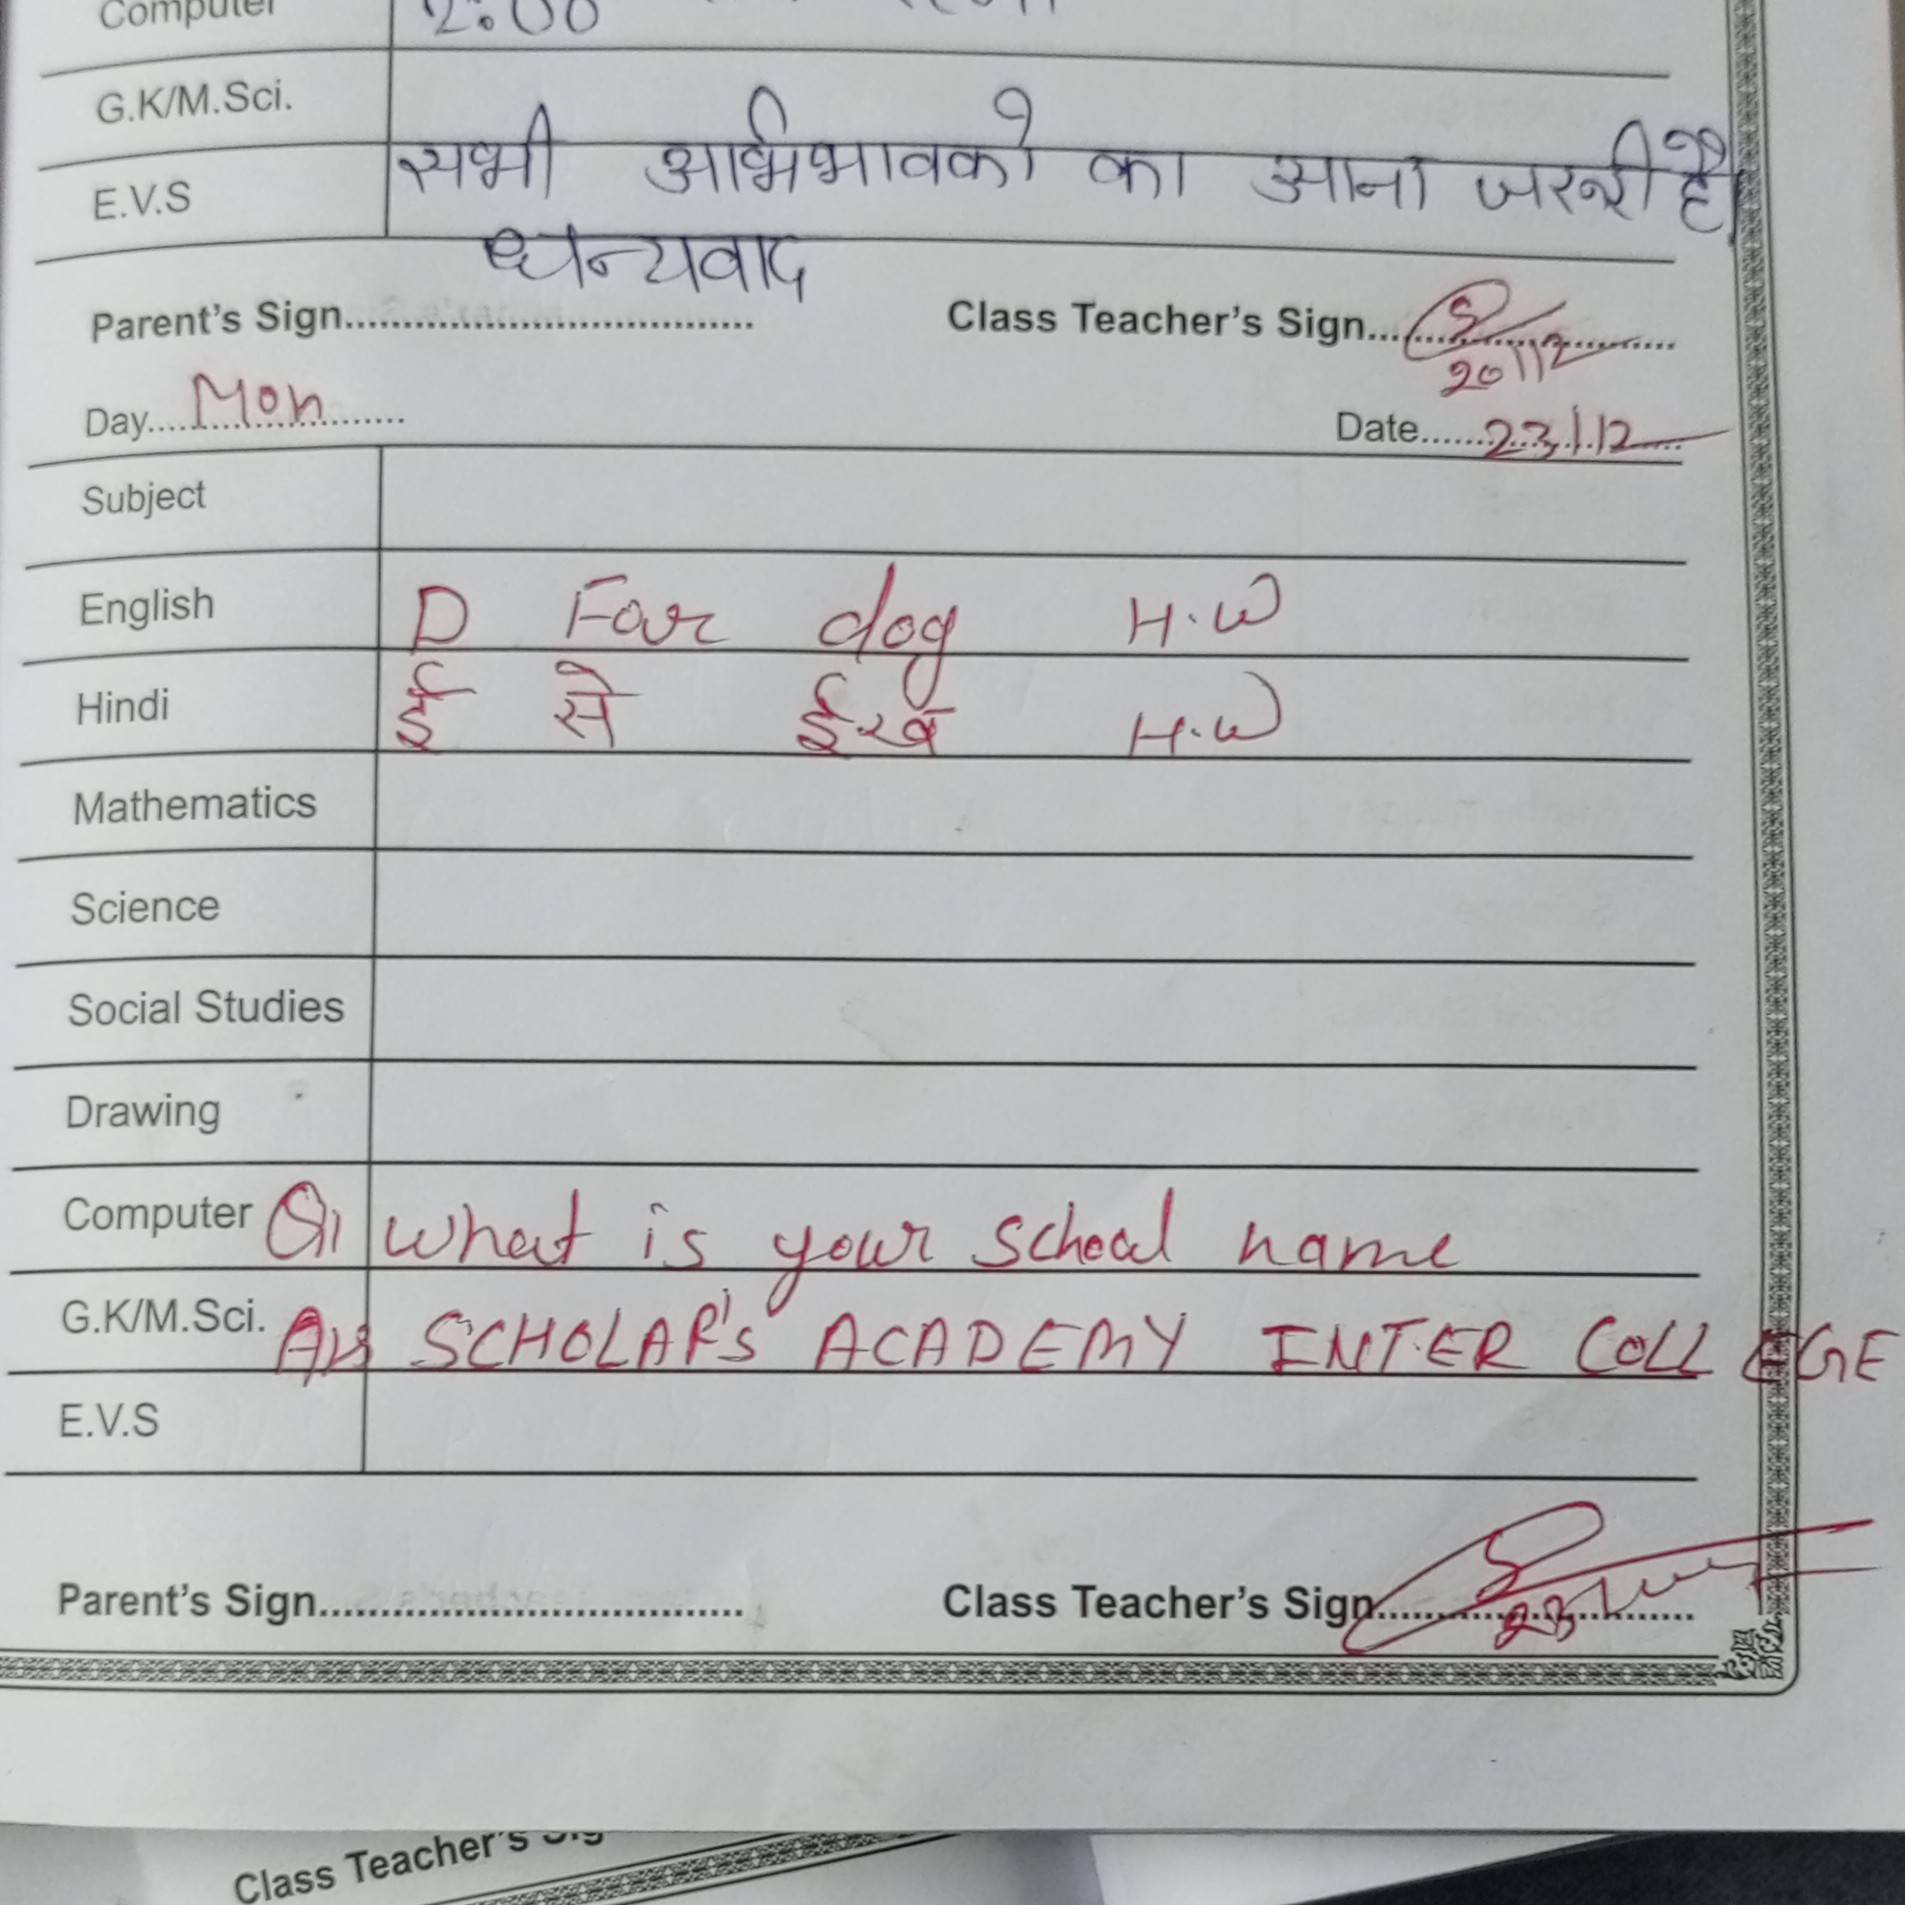 Computer 2:00
G.K/M.Sci.
E.V.S सभी अभिभावको का आना जरूरी है
धन्यवाद
Parent's Sign.................................. Class Teacher's Sign............................
20/12
Day....Mon............ Date.......23/12....
Subject
English D For dog H.W
Hindi ई से ईख H.W
Mathematics
Science
Social Studies
Drawing
Computer Q1 What is your school name
G.K/M.Sci. Ans SCHOLAR's ACADEMY INTER COLLEGE
E.V.S
Parent's Sign.................................. Class Teacher's Sign............................
23
Class Teacher's